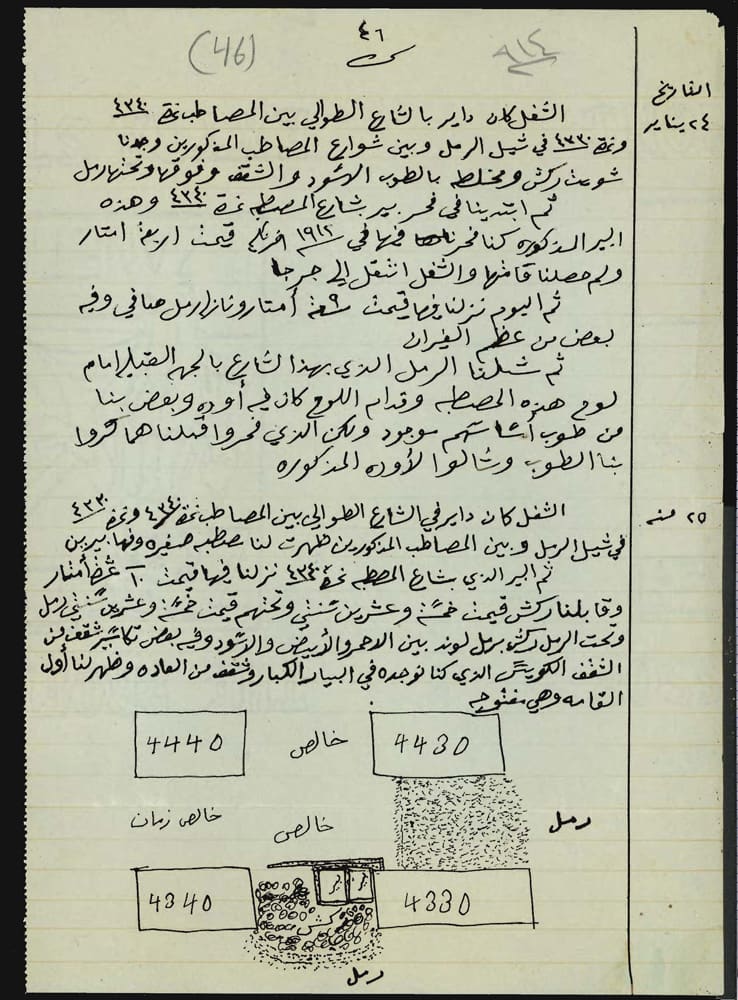 ٤٦
(46)
٩١٤
التاريخ
٢٤ يناير
الشغل كان داير بالشارع الطوالي بين المصاطب نمرة ٤٣٤٠
ونمرة ٤٣٣٠ في شيل الرمل وبين شوارع المصاطب المذكورين وجدنا
شويت ركش ومخلطه بالطوب الاسود والشقف وفوقها وتحتها رمل
ثم ابتدينا في فحر بير بشارع المصطبه نمرة ٤٣٤٠ وهذه
البير المذكوره كنا فحرنا فيها في ١٩١٢ قيمت اربعة امتار
ولم حصلنا قامتها والشغل انتقل إلى جرجا
ثم اليوم نزلنا فيها قيمت ٩ أمتار ونازل رمل صافي وفيه
بعض من عظم الفيران
ثم شلنا الرمل الذي بهذا الشارع بالجهه القبليه امام
لوح هذه المصطبه وقدام اللوح كان فيه أوده وبعض بنا
من طوب أساسهم موجود ولكن الذي فحروا قبلنا هما كروا
بنا الطوب وشالوا الأوده المذكوره
٢٥ منه
الشغل كان داير في الشارع الطوالي بين المصاطب نمرة ٤٣٤٠ ونمرة ٤٣٣٠
في شيل الرمل وبين المصاطب المذكورين ظهرت لنا مصطبه صغيره وفيها بيرين
ثم البير الذي بشارع المصطبه نمرة ٤٣٤٠ نزلنا فيها قيمت ١٠ أمتار
وقابلنا ركش قيمت خمسة وعشرين سنتي وتحتهم قيمت خمسة وعشرين سنتي رمل
وتحت الرمل ركش برمل لوند بين الاحمر والأبيض والاسود وفيه بعض تكاسير شقف من
الشقف الكويس الذي كنا نوجده في البيار الكبار وشقف من العاده وظهر لنا أول
القامه وهي مفتوحه
4440
خالص
4430
خالص زمان
خالص
رمل
4340
بير
بير
4330
ركش
رمل